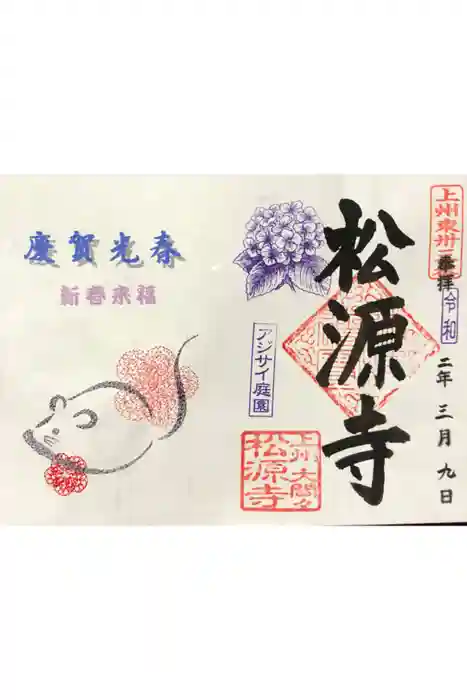 慶賀光春
新春来福
上州東卅三
奉拝
令和
二年三月九日
松源寺
アジサイ庭園
上州大間々
松源寺